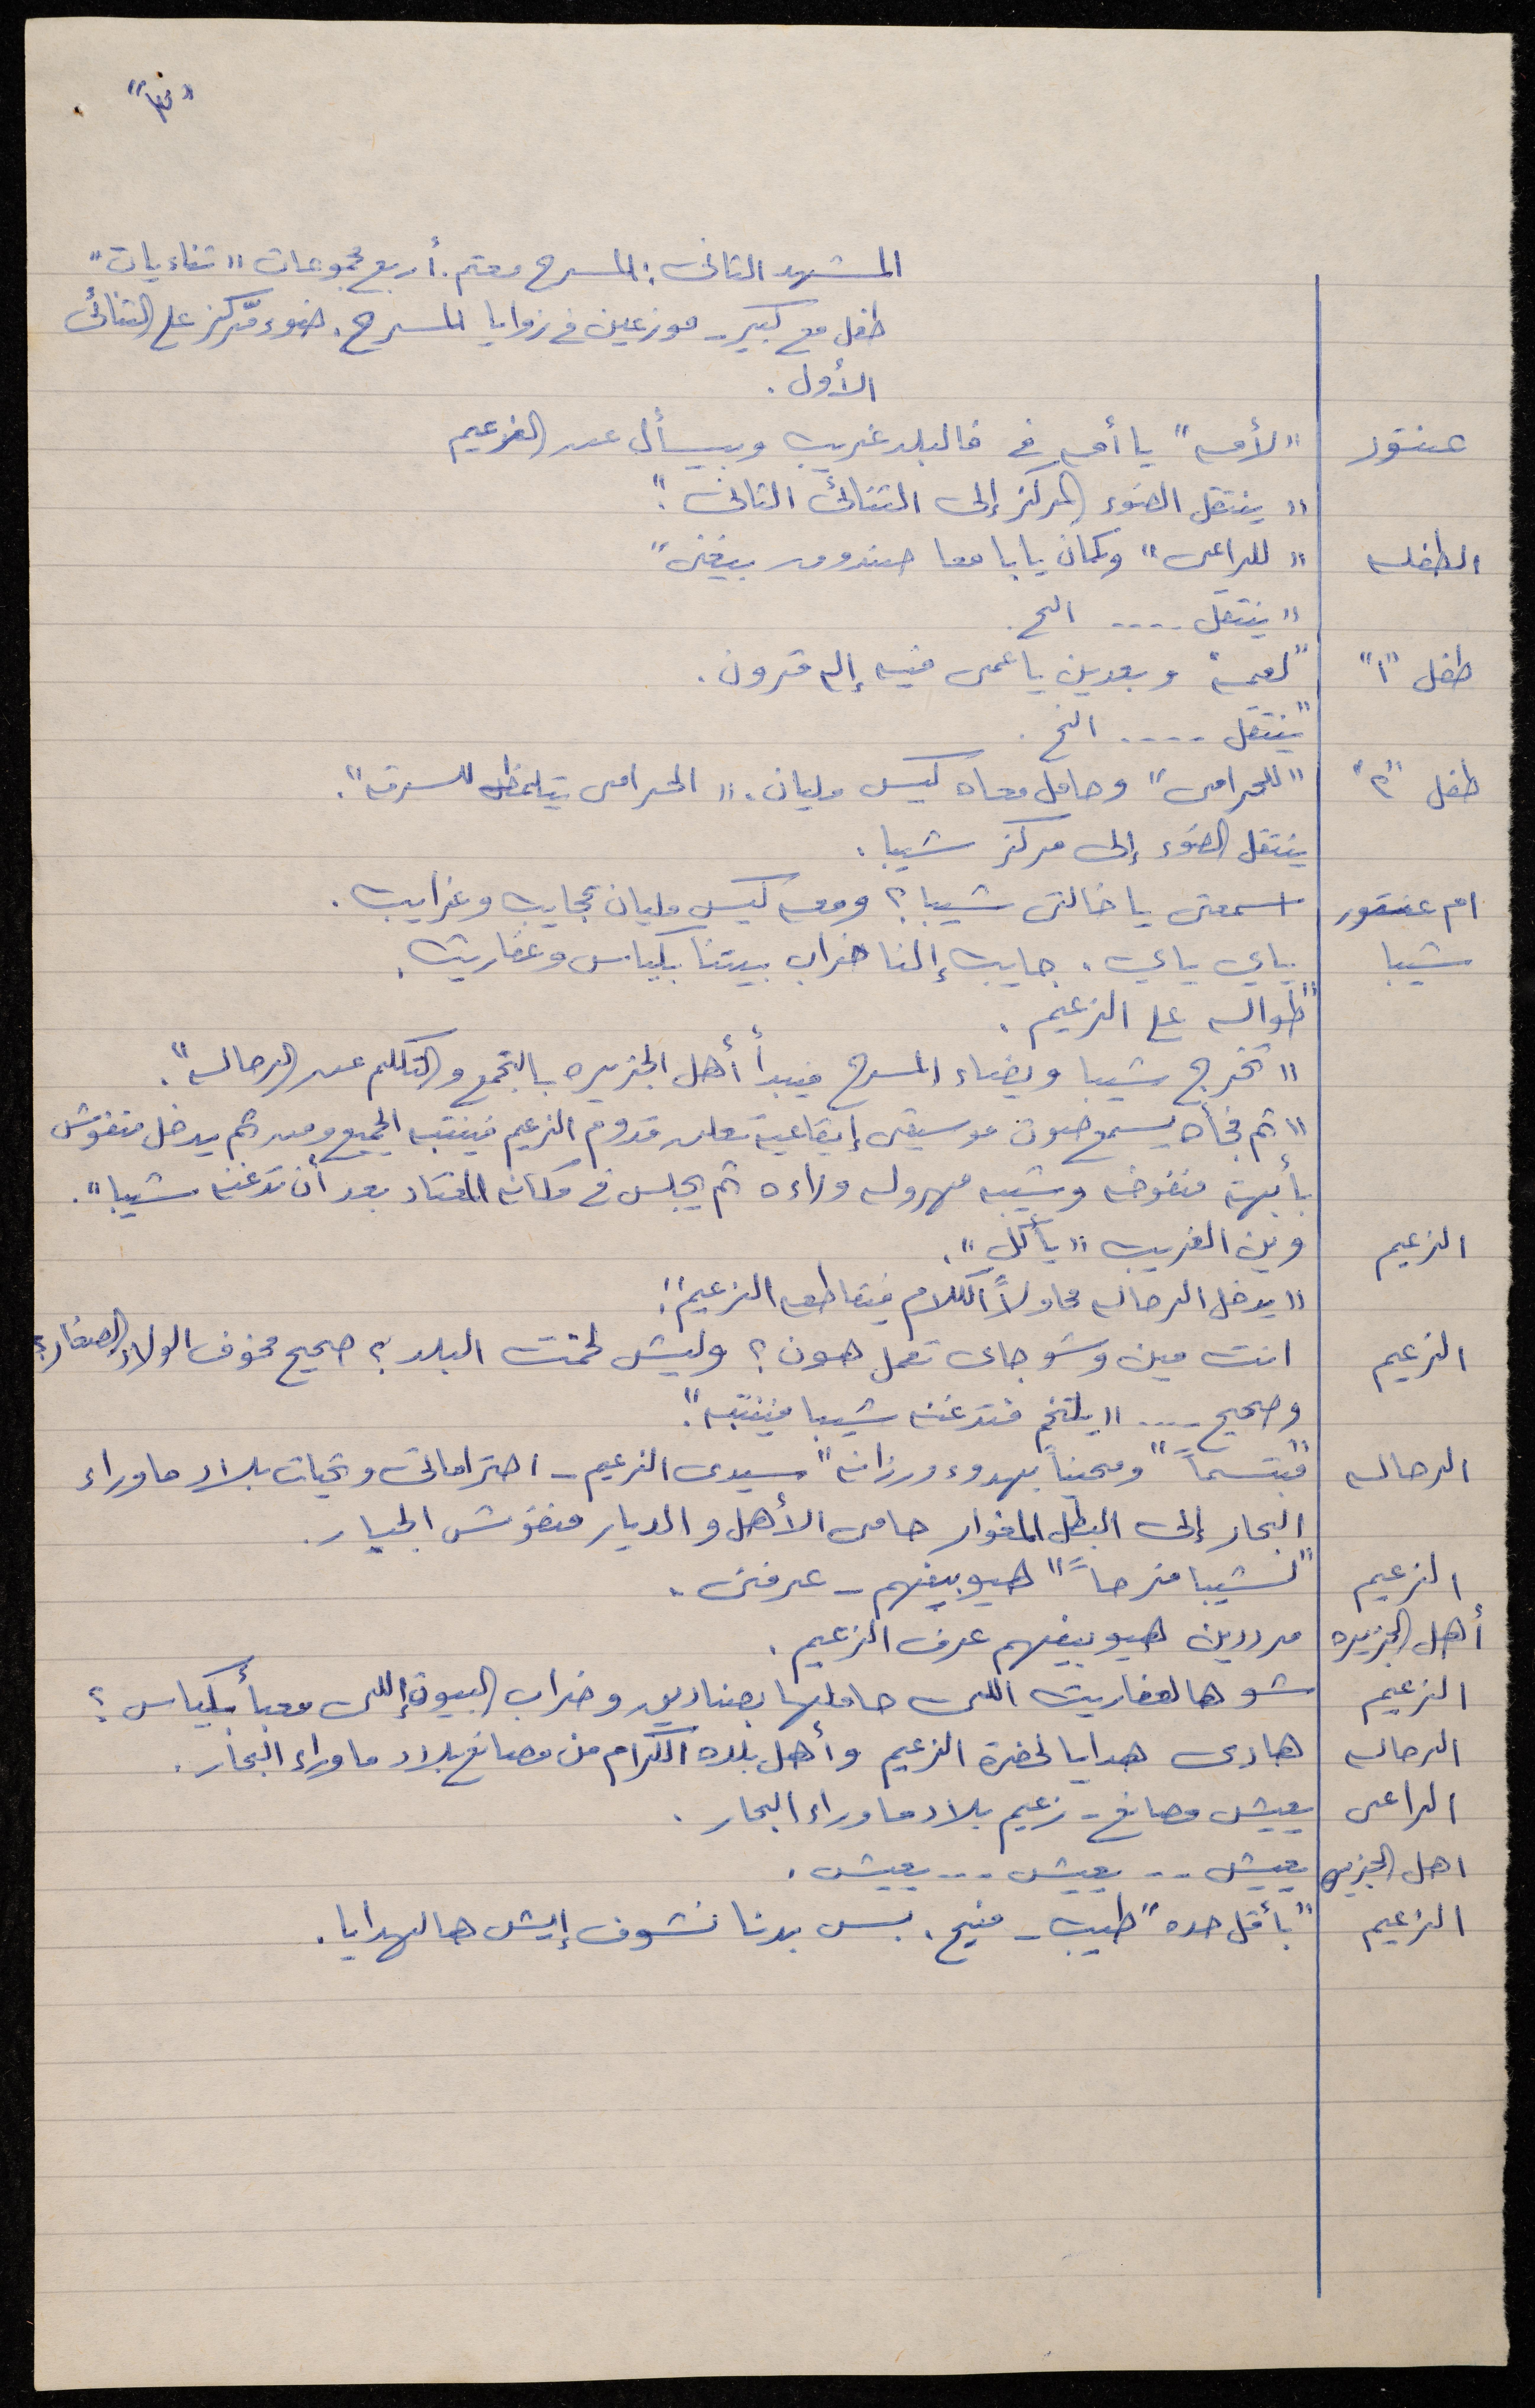 المشهد الثاني: المسرح معتم. أربع مجموعات "ثنائيات"
طفل مع كبير - موزعين في زوايا المسرح. ضوء مركز على الثنائي
الأول.
عنتور "لأمه" يا أمي في فالبلد غريب وبيسأل عن الزعيم
"ينتقل الضوء المركز إلى الثنائي الثاني".
الطفله "للراعي" وكمان يابا معا صندوق بيغني"
"ينتقل .... الخ.
طفل "١" "لعمه" وبعدين يا عمي فيه إله قرون.
"ينتقل .... الخ.
طفل "٢" "للحرامي" وحامل معاه كيس مليان. "الحرامي يتلمظ للسرقه".
ينتقل الضوء إلى مركز شيبا.
ام عنتور اسمعتي يا خالتي شيبا؟ ومعه كيس مليان عجايب وغرايب.
شيبا ياي ياي. جايب إلنا خراب بيتنا بكياس وعفاريت.
"طواله على الزعيم.
"تخرج شيبا ويضاء المسرح فيبدأ أهل الجزيره بالتجمع والتكلم عن الرحاله".
"ثم فجأه يسمع صوت موسيقى إيقاعية تعلن قدوم الزعيم فينتبه الجميع ومن ثم يدخل منفوش
بأبهة منفوخه وشيبه مهروله وراءه ثم يجلس في مكانه المعتاد بعد أن تدغنه شيبا".
الزعيم وين الغريب "يأكل".
"يدخل الرحاله محاولاً الكلام فيقاطعه الزعيم".
الزعيم انت مين وشو جاي تعمل هون؟ وليش لخمت البلد؟ صحيح مخوف الولاد الصغار؟
وصحيح ... "يلتخم فتدغنه شيبا فينتبه".
الرحاله "مبتسماً" ومحيياً بهدوء ورزانه" سيدي الزعيم - احتراماتي وتحيات بلاد ما وراء
البحار إلى البطل المغوار حامي الأهل والديار منفوش الجبار.
الزعيم "لشيبا فرحاً" هيو بيفهم - عرفني.
أهل الجزيره مرددين هيو بيفهم عرف الزعيم.
الزعيم شو هالعفاريت اللي حاملها بصناديق وخراب البيوت إللي معبأ بكياس؟
الرحاله هادي هدايا لحضرة الزعيم وأهل بلده الكرام من مصانع بلاد ما وراء البحار.
الراعي يعيش مصانع - زعيم بلاد ما وراء البحار.
اهل الجزيره يعيش .. يعيش ... يعيش.
الزعيم "بأقل حده" طيب - منيح. بس بدنا نشوف إيش هالهدايا.